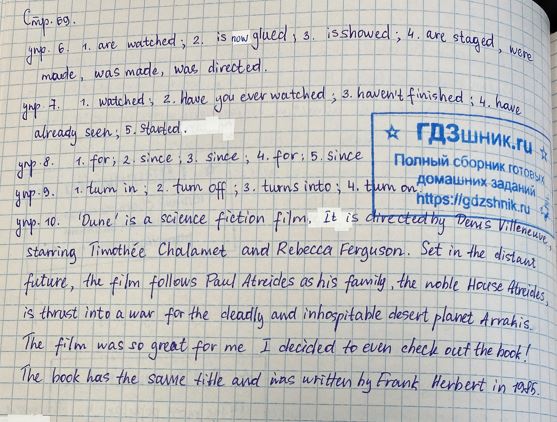 Стр. 69.
упр. 6. 1. are watched; 2. is now glued; 3. is showed; 4. are staged, were
made, was made, was directed.
упр. 7. 1. watched; 2. Have you ever watched; 3. haven't finished; 4. have
already seen; 5. started.
упр. 8. 1. for; 2. since; 3. since; 4. for; 5. since
упр. 9. 1. turn in; 2. turn off; 3. turns into; 4. turn on
упр. 10. 'Dune' is a science fiction film. It is directed by Denis Villeneuve,
starring Timothée Chalamet and Rebecca Ferguson. Set in the distant
future, the film follows Paul Atreides as his family, the noble House Atreides,
is thrust into a war for the deadly and inhospitable desert planet Arrakis.
The film was so great for me I decided to even check out the book!
The book has the same title and was written by Frank Herbert in 1985.
ГДЗшник.ru
Полный сборник готовых
домашних заданий
https://gdzshnik.ru